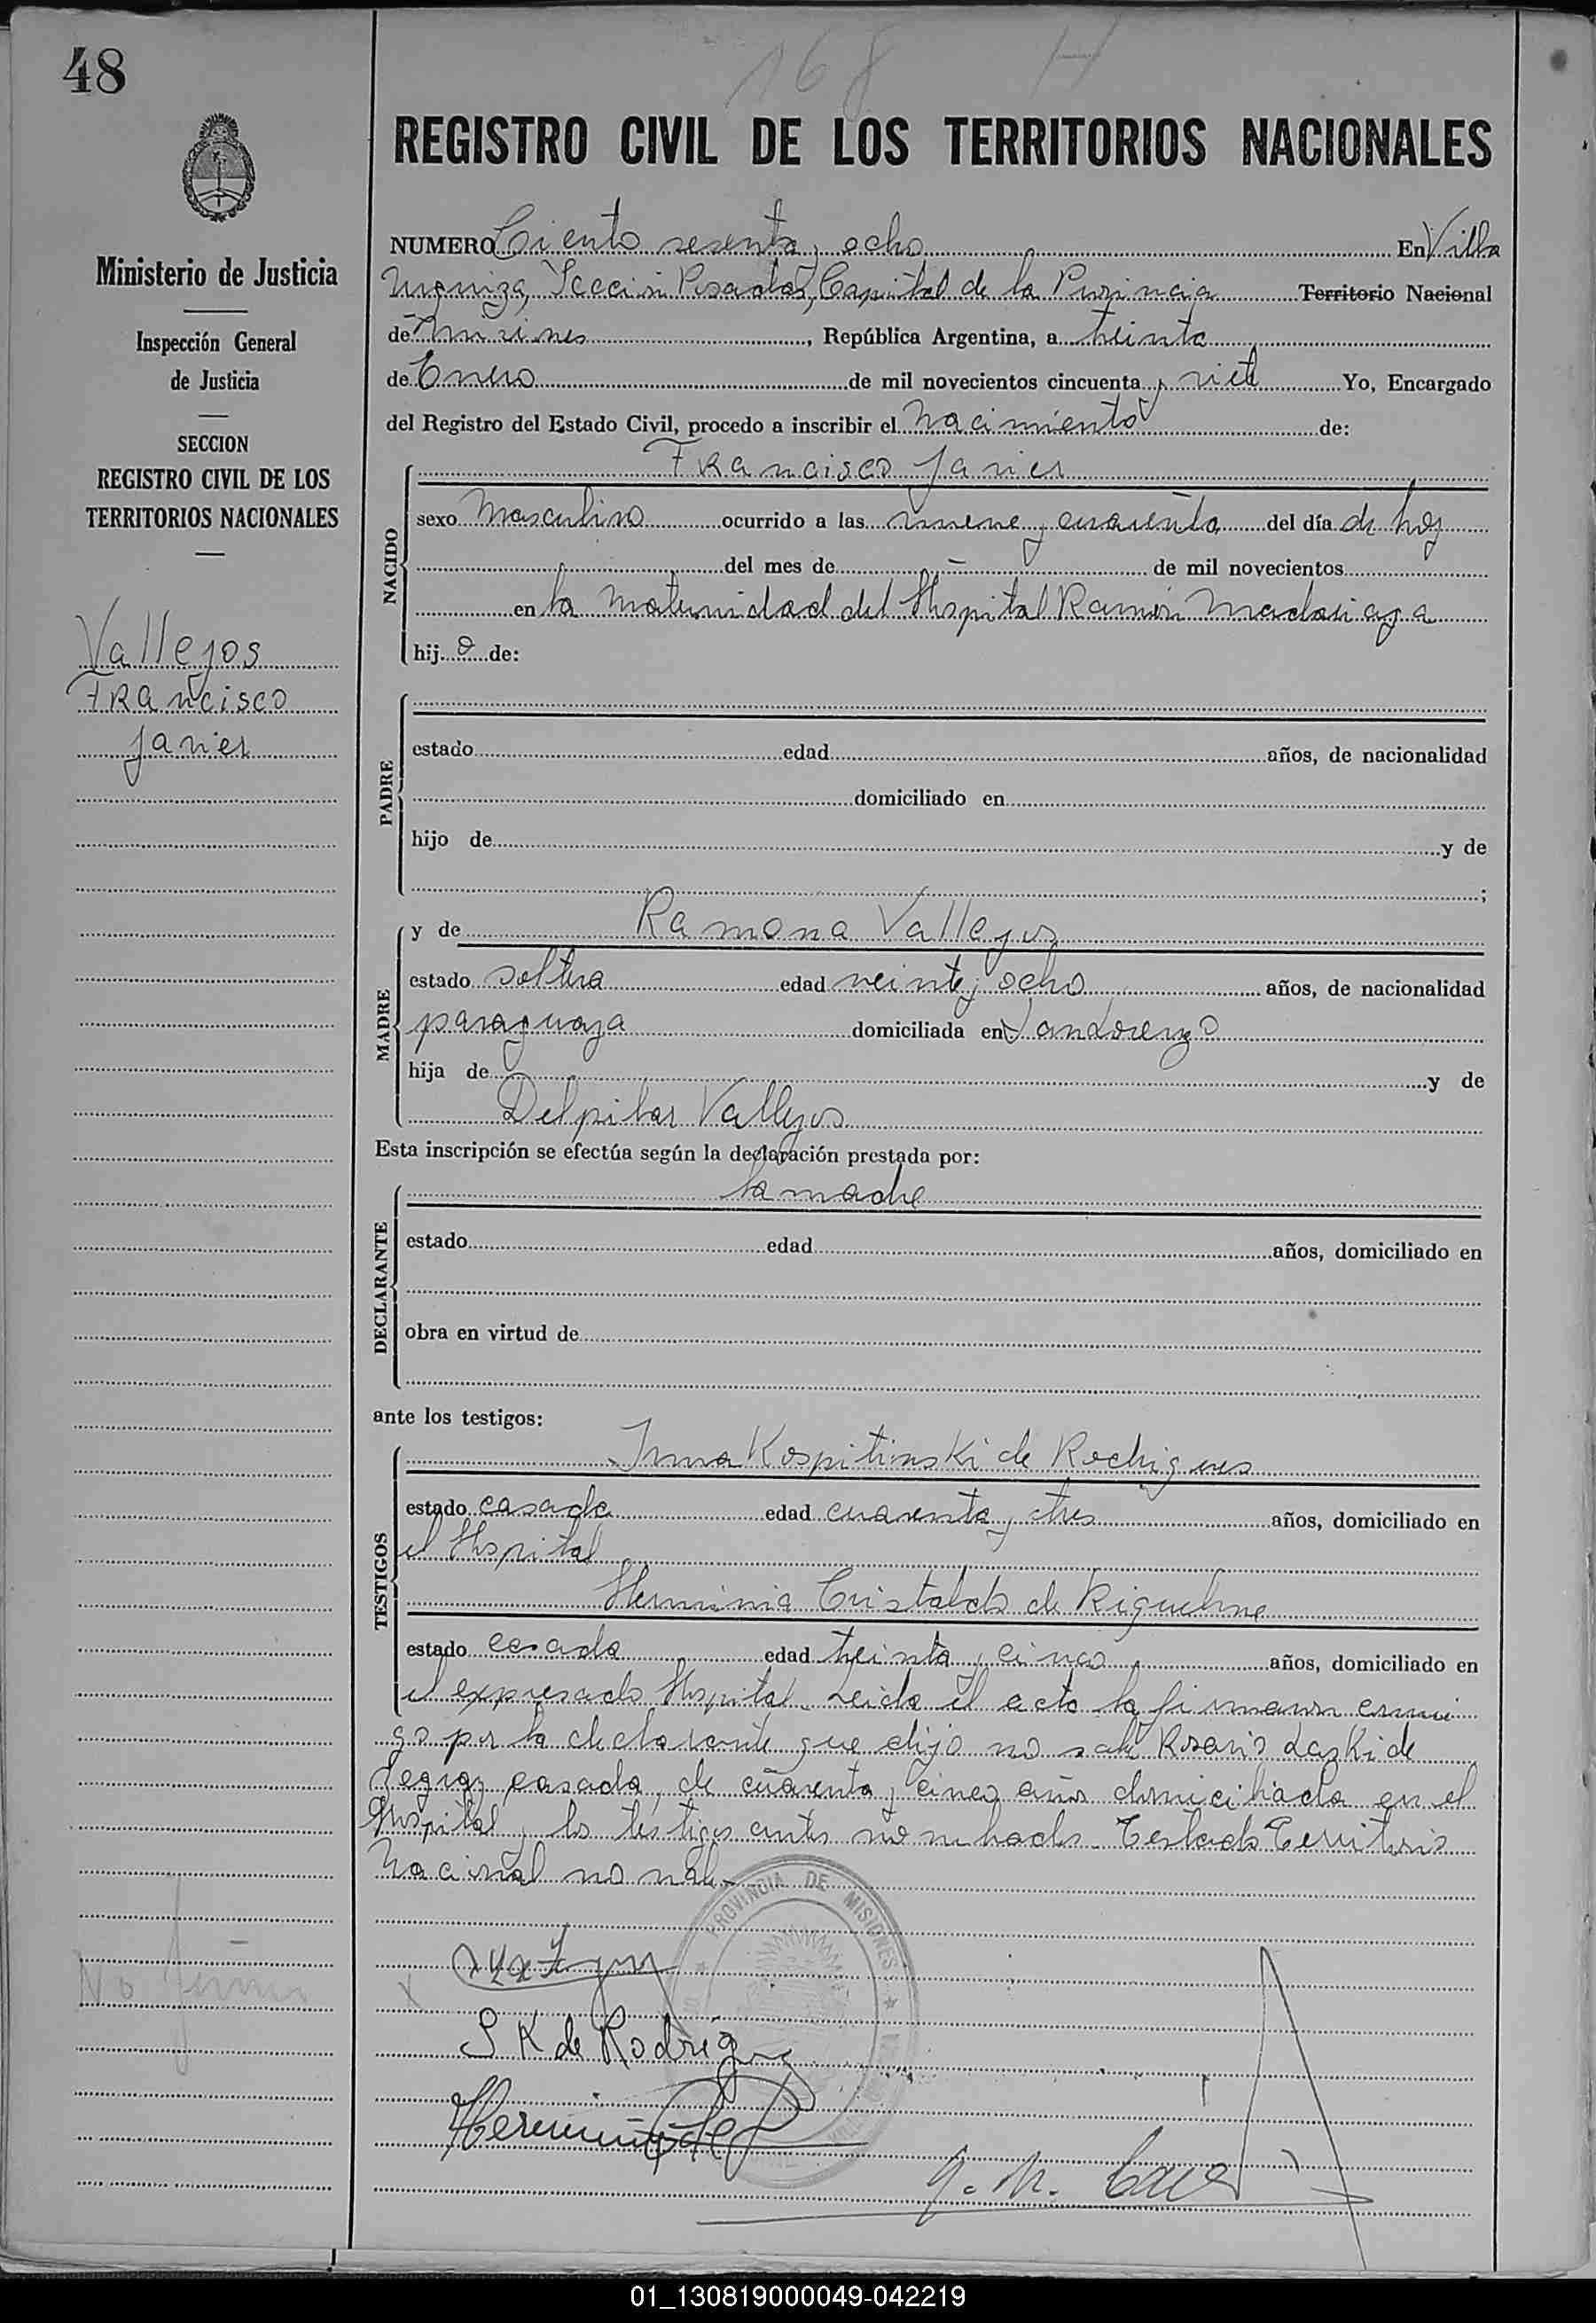 48
168 H
REGISTRO CIVIL DE LOS TERRITORIOS NACIONALES
Ministerio de Justicia
Inspección General
de Justicia
SECCION
REGISTRO CIVIL DE LOS
TERRITORIOS NACIONALES
Vallejos
Francisco
Javier
NUMERO Ciento sesenta y ocho En Villa
Urquiza, Sección Posadas, Capital de la Provincia Territorio Nacional
de Misiones, República Argentina, a treinta
de Enero de mil novecientos cincuenta y siete Yo, Encargado
del Registro del Estado Civil, procedo a inscribir el Nacimiento de:
NACIDO
Francisco Javier
sexo Masculino ocurrido a las nueve y cuarenta del día de hoy
del mes de de mil novecientos
en la maternidad del Hospital Ramón Madariaga
hijo de:
PADRE
estado edad años, de nacionalidad
domiciliado en
hijo de y de
;
MADRE
y de Ramona Vallejos
estado soltera edad veinte y ocho años, de nacionalidad
paraguaya domiciliada en San Lorenzo
hija de y de
Delpilar Vallejos
Esta inscripción se efectúa según la declaración prestada por:
DECLARANTE
la madre
estado edad años, domiciliado en
obra en virtud de
ante los testigos:
TESTIGOS
Kospitinski de Rodrigues
estado casada edad cuarenta y tres años, domiciliado en
el Hospital
Herminia Cristaldo de Riquelme
estado casada edad treinta y cinco años, domiciliado en
el expresado Hospital. Leida el acta la firmaron conmi
go por la declarante que dijo no saber Rosario Laski de
casada, de cuarenta y cinco años domiciliada en el
Hospital y los testigos antes nombrados. Testado Territorio
Nacional no vale.
PROVINCIA DE MISIONES
No firma
x
S K de Rodriguez
Herminia C de R
01_130819000049-042219